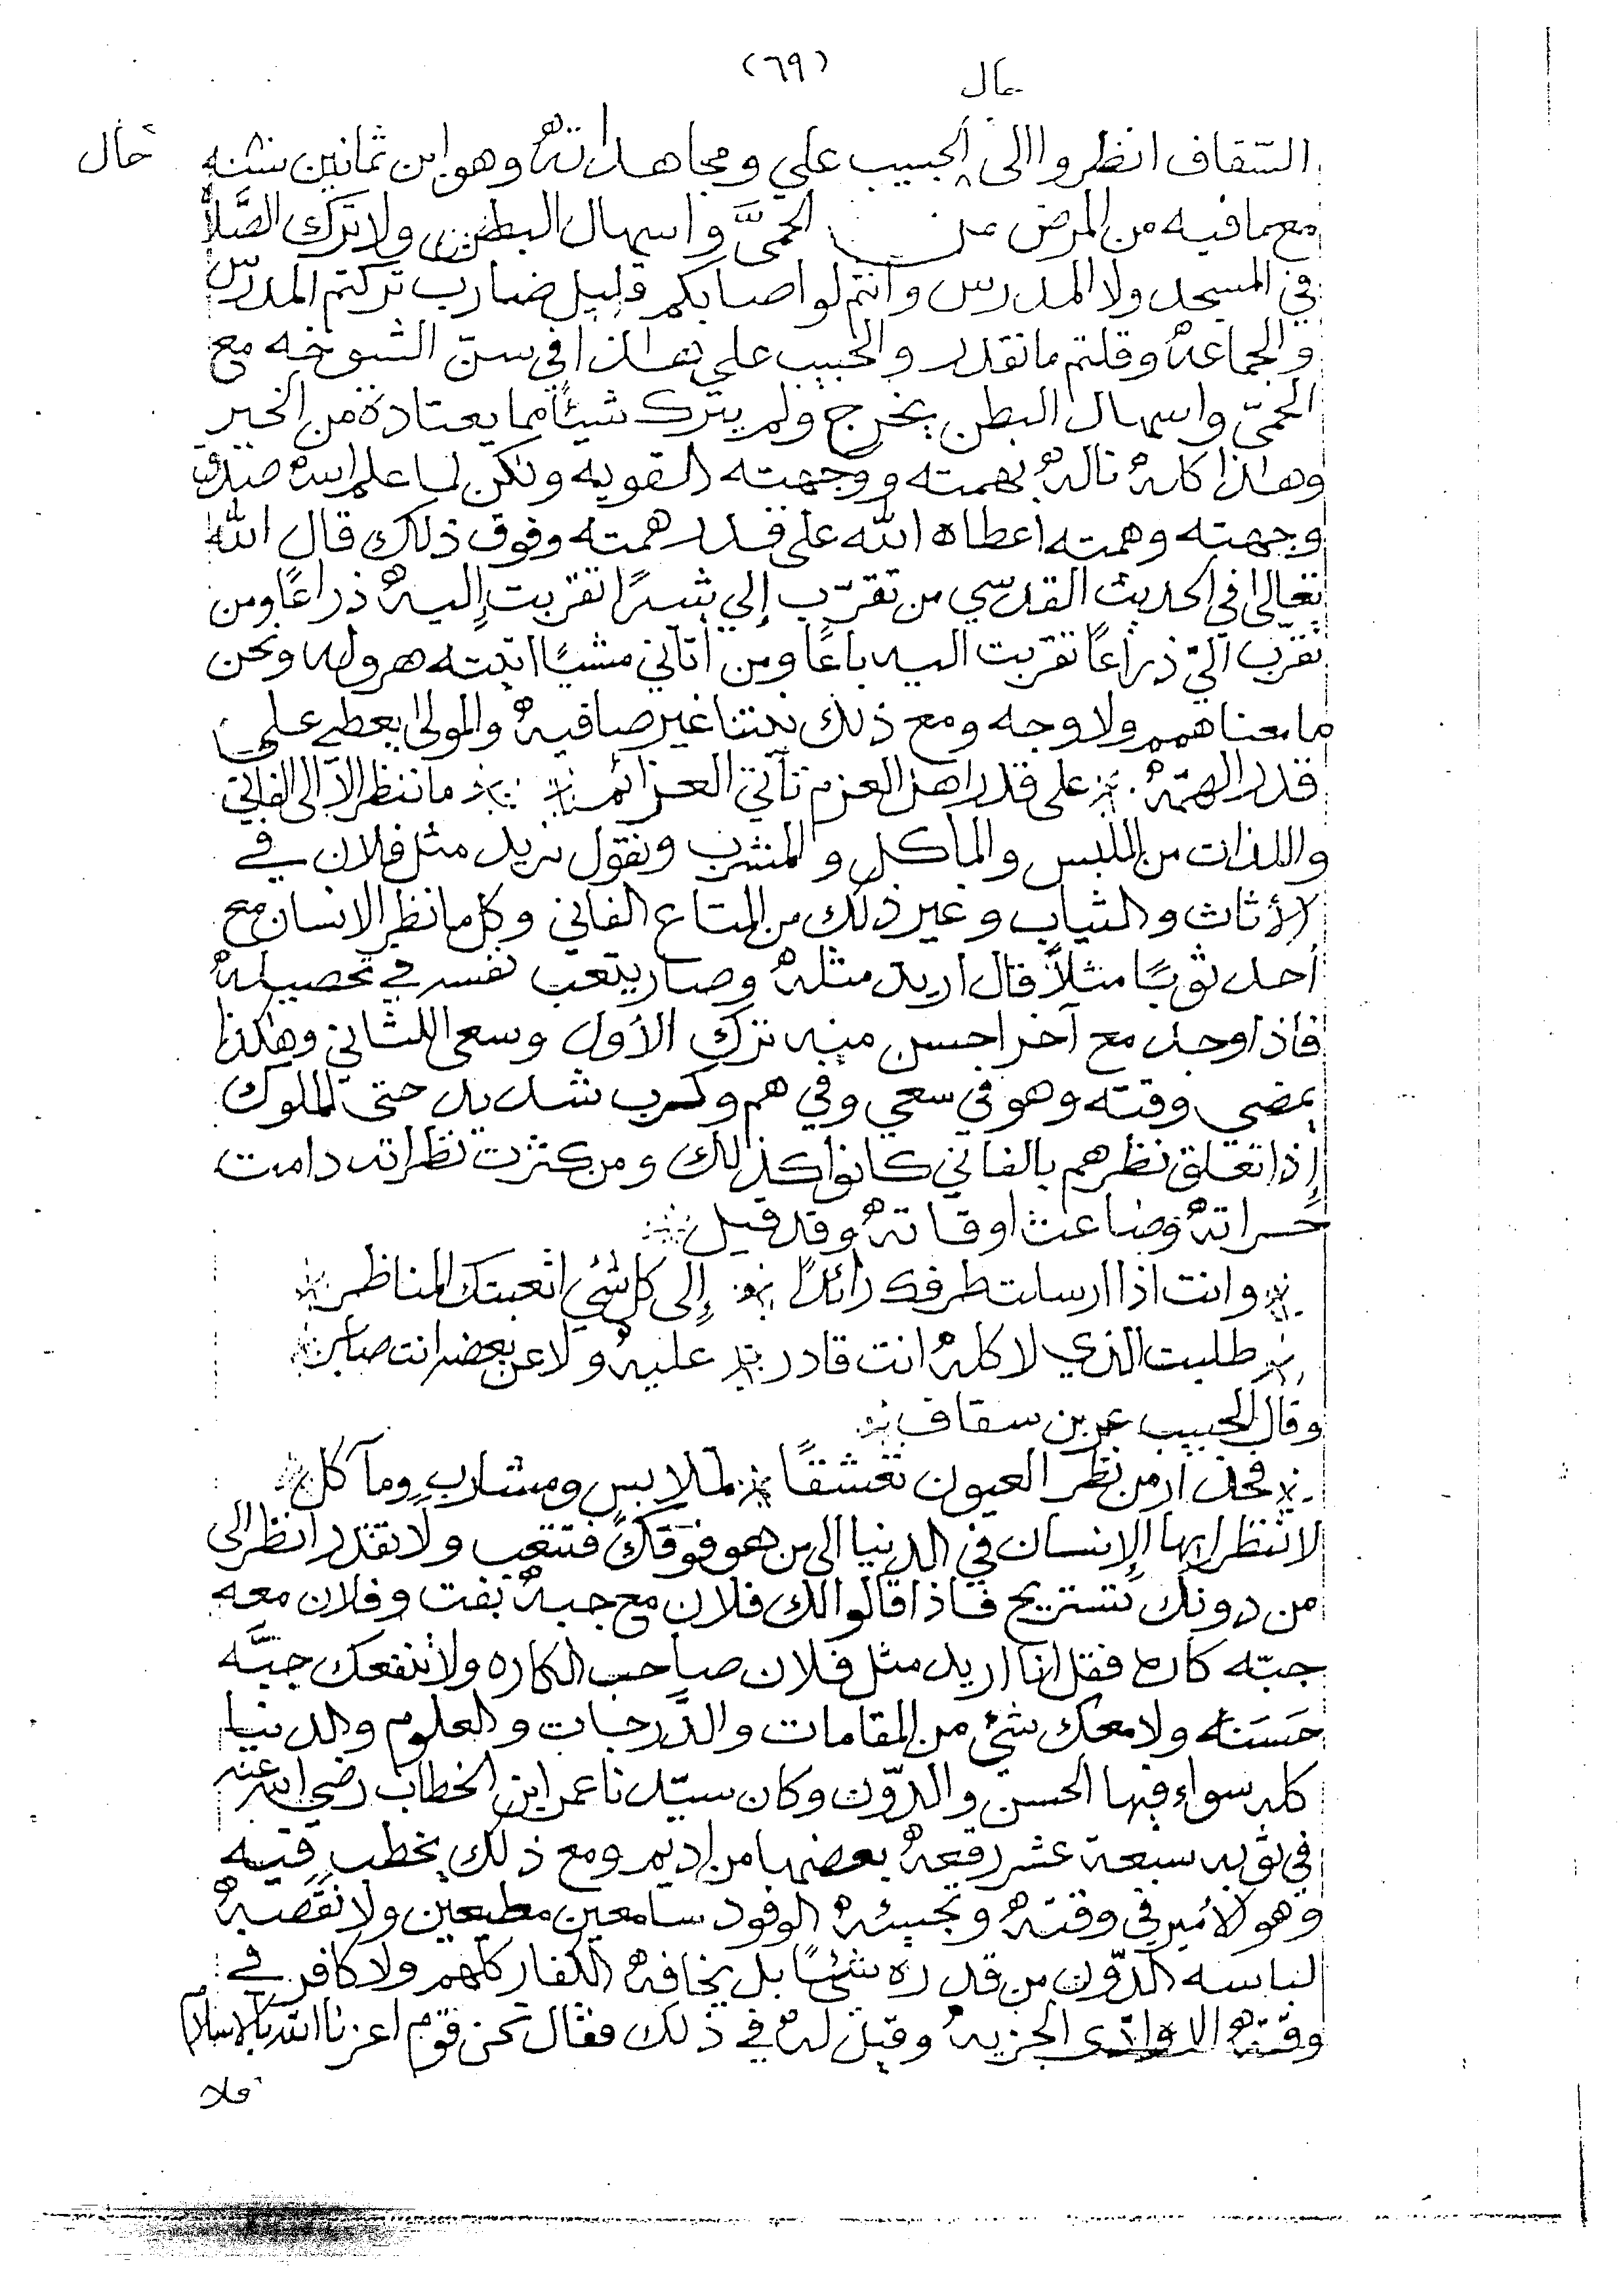 (٦٩)
خال
السّقاف انظروا الى الحبيب علي ومجاهداته وهو ابن ثمانين سنه خال
مع ما فيه من المرض من الحمىَّ واسهال البطن ولا ترك الصَّلاة
في المسجد ولا المدرس وانتم لو اصابكم قليل ضارب تركتم المدرس
والجماعة وقلتم ما نقدر والحبيب علي هذا في سنّ الشوخه مع
الحمىّ واسهال البطن يخرج ولم يترك شيئاً مما يعتاده من الخير
وهاذا كله ناله بهمته ووجهته القويه ولكن لما علم الله صدق
وجهته وهمته اعطاه الله على قدر همته وفوق ذلك قال الله
تعالى في الحديث القدسي من تقرّب إلي شبرًا تقربت إليه ذراعًا ومن
تقرب اليّ ذراعًا تقربت اليه باعًا ومن أتاني مشيًا اتيته هروله ونحن
ما معنا همم ولا وجه ومع ذلك نيتنا غير صافيه والمولى يعطي على
قدر الهمّة على قدر اهل العزم تأتي العزائم ما ننظر الاّ الى الفاني
واللذات من الملبس والمأكل والمشرب ونقول نريد مثل فلان في
الأثاث والثياب وغير ذلك من المتاع الفاني وكل ما نظر الانسان مع
أحد ثوبًا مثلاً قال اريد مثله وصار يتعب نفسه في تحصيله
فاذا وجد مع آخر احسن منه ترك الأول وسعى للثاني وهاكذا
يمضي وقته وهو في سعي وفي هم وكرب شديد حتى الملوك
إذا تعلق نظرهم بالفاني كانوا كذالك ومن كثرت نظراته دامت
حسراته وضاعت اوقاته وقد قيل
وانت اذا ارسلت طرفك رائدًا إلى كل شيْ اتعبتك المناظر
طلبت الذي لا كله انت قادر عليه ولا عن بعضه انت صابر
وقال الحبيب عمر بن سقاف
فحذار من نظر العيون تعشقًا لملابس ومشاربٍ ومآكل
لا تنظر ايها الإنسان في الدنيا الى من هو فوقك فتتعب ولا تقدر انظر الى
من دونك تستريح فاذا قالوا لك فلان مع جبة بفت وفلان معه
جبّه كاره فقل انا اريد مثل فلان صاحب الكاره ولا تنفعك جبَّه
حَسَنَه ولا معك شيْ من المقامات والدَّرجات والعلوم والدنيا
كله سواء فيها الحسن والدوّن وكان سيّدنا عمر ابن الخطاب رضي الله عنه
في ثوبه سبعة عشر رقعة بعضها من اديم ومع ذلك يخطب فيه
وهو الأمير في وقته وتجيئه الوفود سامعين مطيعين ولا نقَّصه
لباسه الدّون من قدره شيئًا بل يخافه الكفار كلهم ولا كافر في
وقته الا وادّى الجزيه وقيل له في ذلك فقال نحن قوم اعزنا الله بالاسلام
فلا